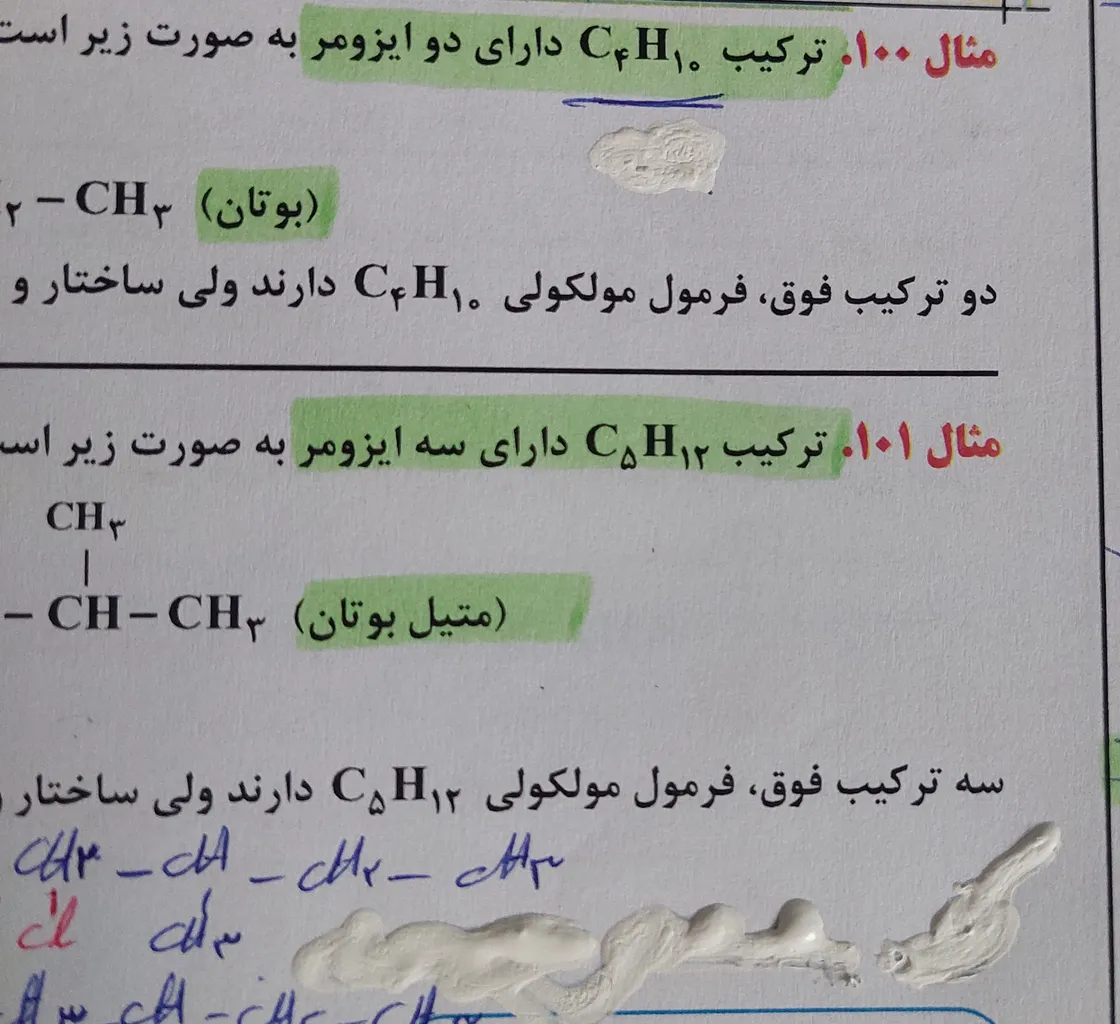 مثال ۱۰۰. ترکیب C۴H۱۰ دارای دو ایزومر به صورت زیر است
۲ – CH۳ (بوتان)
دو ترکیب فوق، فرمول مولکولی C۴H۱۰ دارند ولی ساختار و
مثال ۱۰۱. ترکیب C۵H۱۲ دارای سه ایزومر به صورت زیر اس
CH۳
|
– CH – CH۳ (متیل بوتان)
سه ترکیب فوق، فرمول مولکولی C۵H۱۲ دارند ولی ساختار
CH۳ – CH – CH۲ – CH۳
Cl CH۳